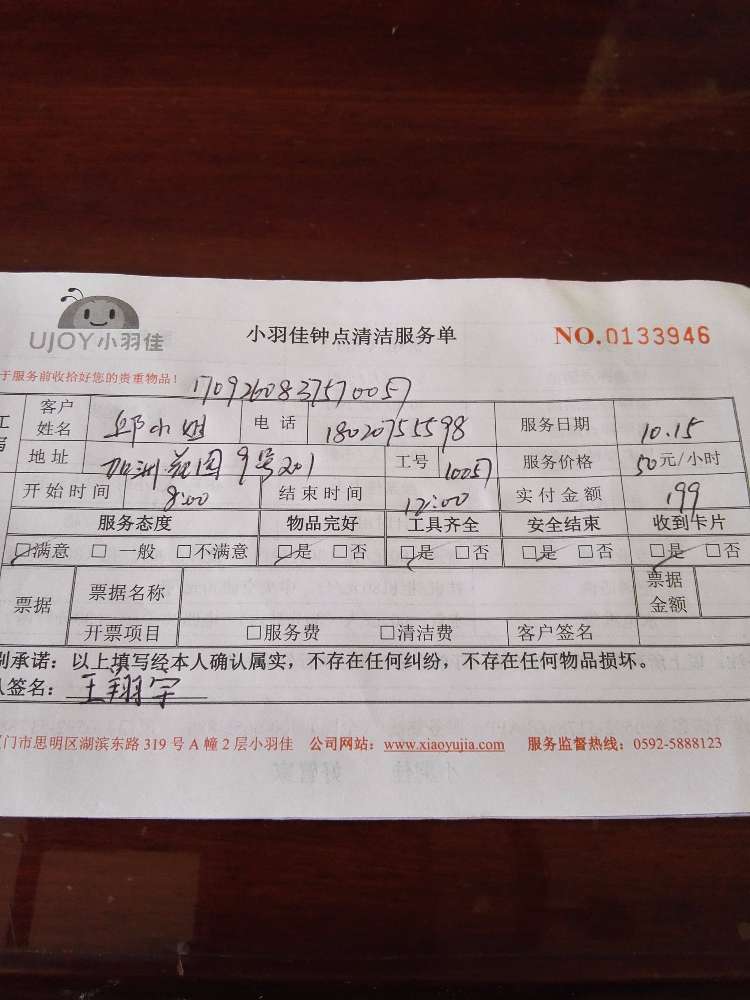 UJOY小羽佳
小羽佳钟点清洁服务单
NO.0133946
于服务前收拾好您的贵重物品！
客户姓名 邱小姐 电 话 18020755598 服务日期 10.15
地 址 加洲花园9号201 工号 10057 服务价格 50元/小时
开 始 时 间 8:00 结 束 时 间 12:00 实 付 金 额 199
服务态度 物品完好 工具齐全 安全结束 收到卡片
□满意 □ 一般 □不满意 □是 □否 □是 □否 □是 □否 □是 □否
票据 票据名称 票据金额
开票项目 □服务费 □清洁费 客户签名
别承诺：以上填写经本人确认属实，不存在任何纠纷，不存在任何物品损坏。
人签名： 王翔宇
门市思明区湖滨东路 319 号 A 幢 2 层小羽佳 公司网站：www.xiaoyujia.com 服务监督热线：0592-5888123